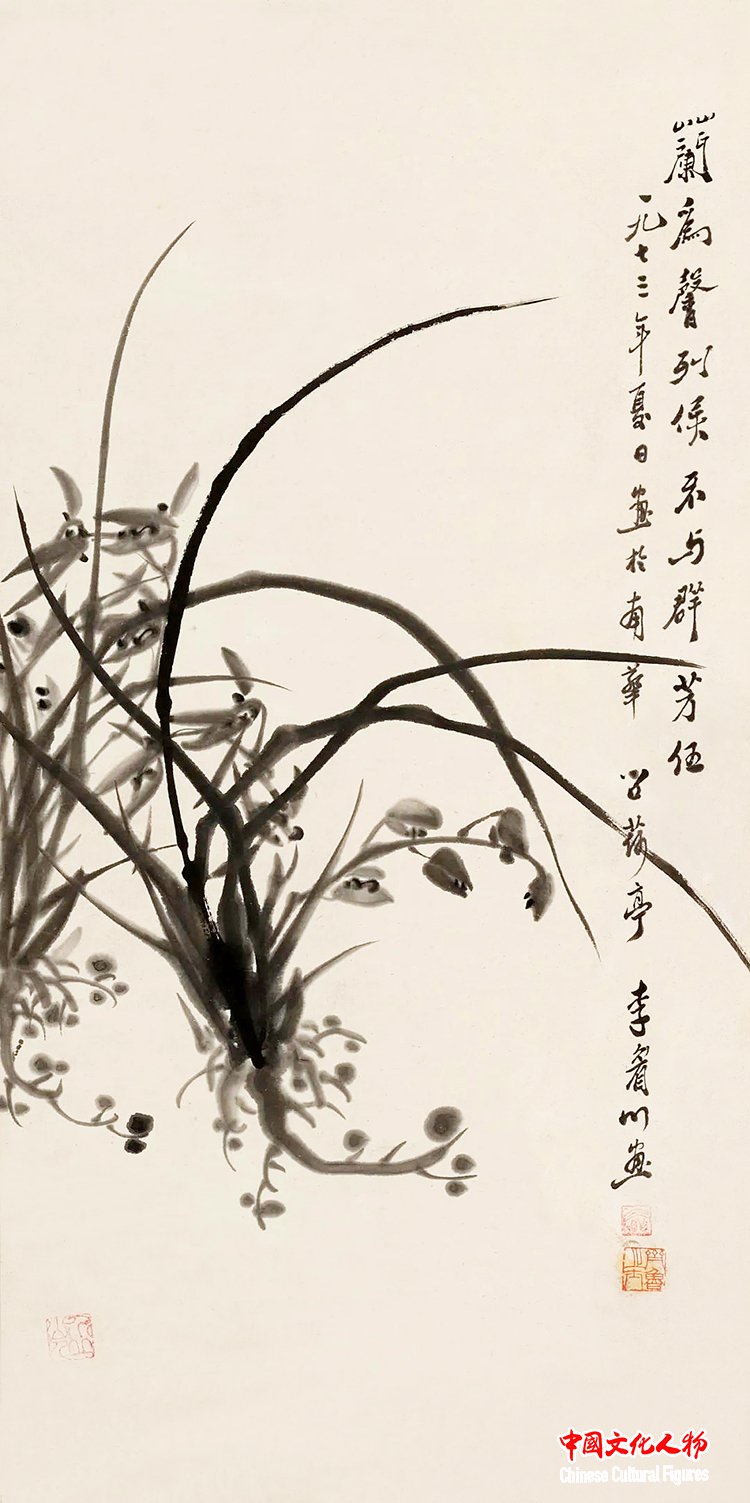 蘭為馨列侯不与群芳伍
一九七三年夏日画於南華
荷亭 李
画
中國文化人物
Chinese Cultural Figures